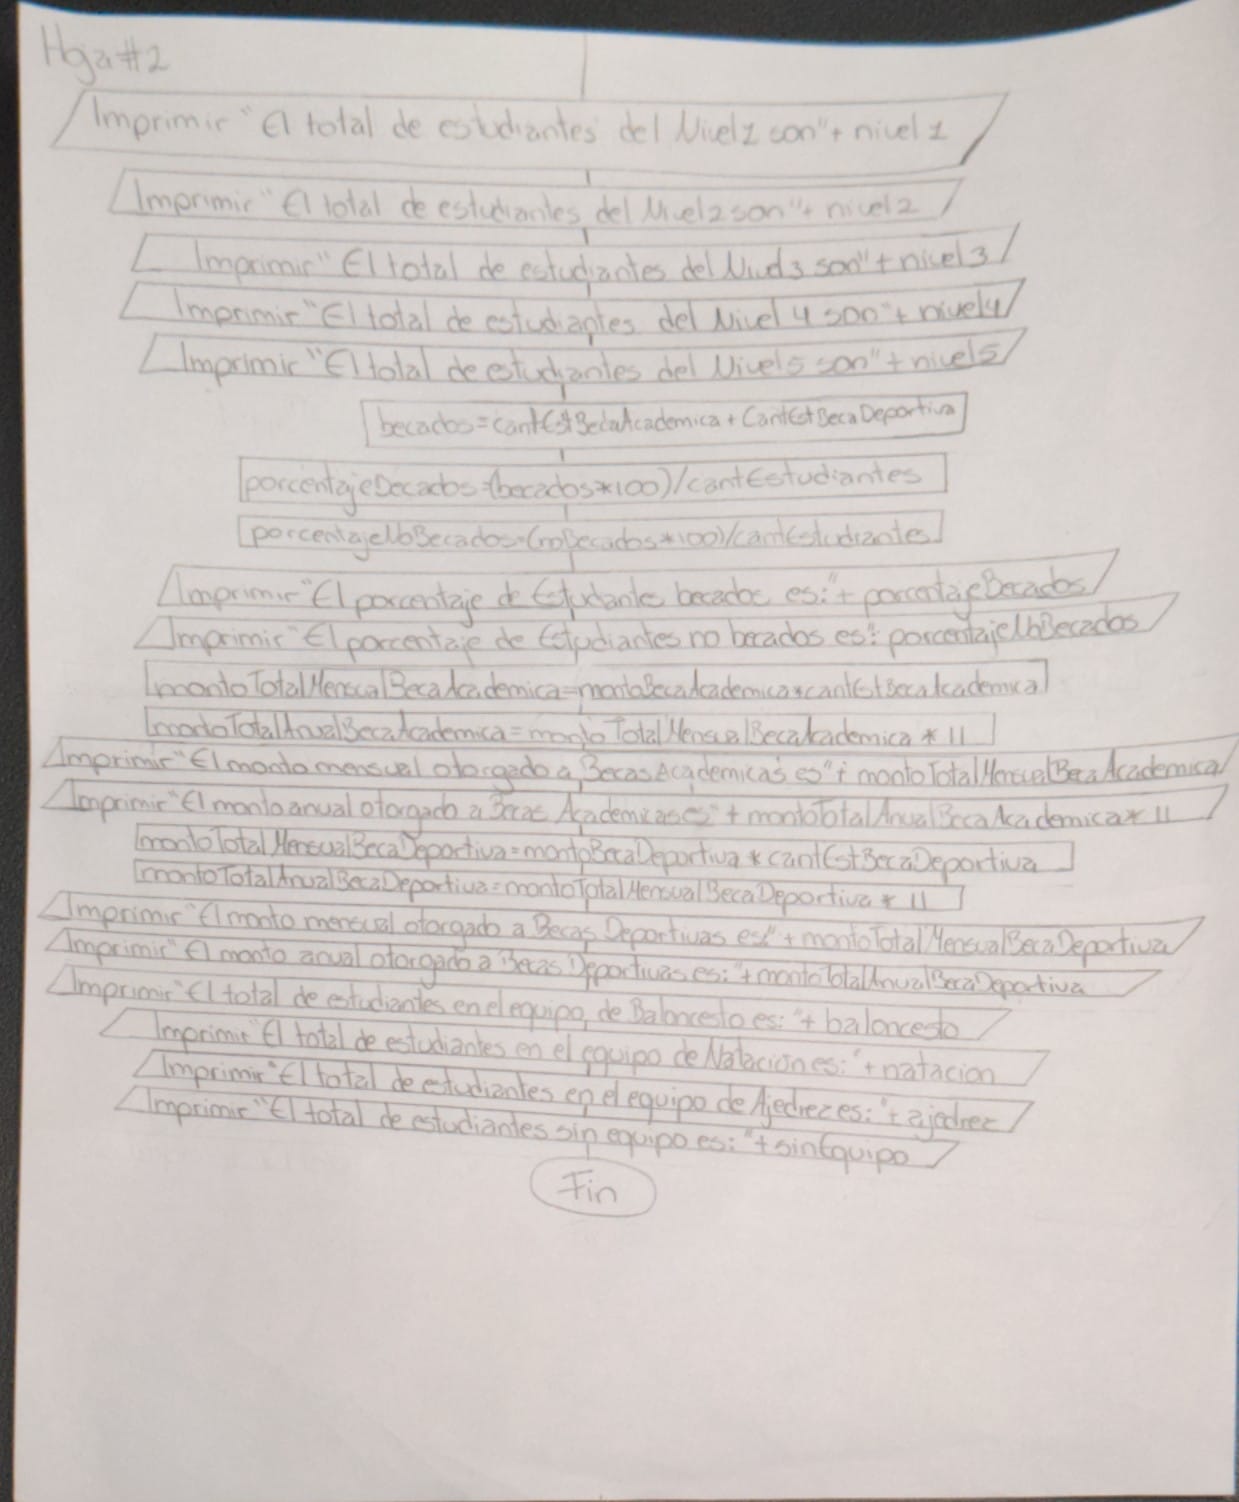 Hoja#2
Imprimir "El total de estudiantes del Nivel1 son"+ nivel 1
Imprimir "El total de estudiantes del Nivel2 son"+ nivel2
Imprimir "El total de estudiantes del Nivel3 son"+nivel3
Imprimir "El total de estudiantes del Nivel 4 son"+ nivel4
Imprimir "El total de estudiantes del Nivel5 son"+nivel5
becados=cantEstBecaAcademica + CantEstBecaDeportiva
porcentajeBecados=(becados*100)/cantEstudiantes
porcentajeNoBecados=(noBecados*100)/cantEstudiantes
Imprimir "El porcentaje de Estudiantes becados es:"+ porcentajeBecados
Imprimir "El porcentaje de Estudiantes no becados es": porcentajeNoBecados
montoTotalMensualBecaAcademica=montoBecaAcademica*cantEstBecaAcademica
montoTotalAnualBecaAcademica=montoTotalMensualBecaAcademica * 11
Imprimir "El monto mensual otorgado a Becas Academicas es"+ montoTotalMensualBecaAcademica
Imprimir "El monto anual otorgado a Becas Academicas es" + montoTotalAnualBecaAcademica* 11
montoTotalMensualBecaDeportiva=montoBecaDeportiva * cantEstBecaDeportiva
montoTotalAnualBecaDeportiva=montoTotalMensualBecaDeportiva * 11
Imprimir "El monto mensual otorgado a Becas Deportivas es:"+montoTotalMensualBecaDeportiva
Imprimir "El monto anual otorgado a Becas Deportivas es:"+montoTotalAnualBecaDeportiva
Imprimir "El total de estudiantes en el equipo de Baloncesto es:"+ baloncesto
Imprimir "El total de estudiantes en el equipo de Natacion es:"+natacion
Imprimir "El total de estudiantes en el equipo de Ajedrez es:"+ajedrez
Imprimir "El total de estudiantes sin equipo es:"+sinEquipo
Fin